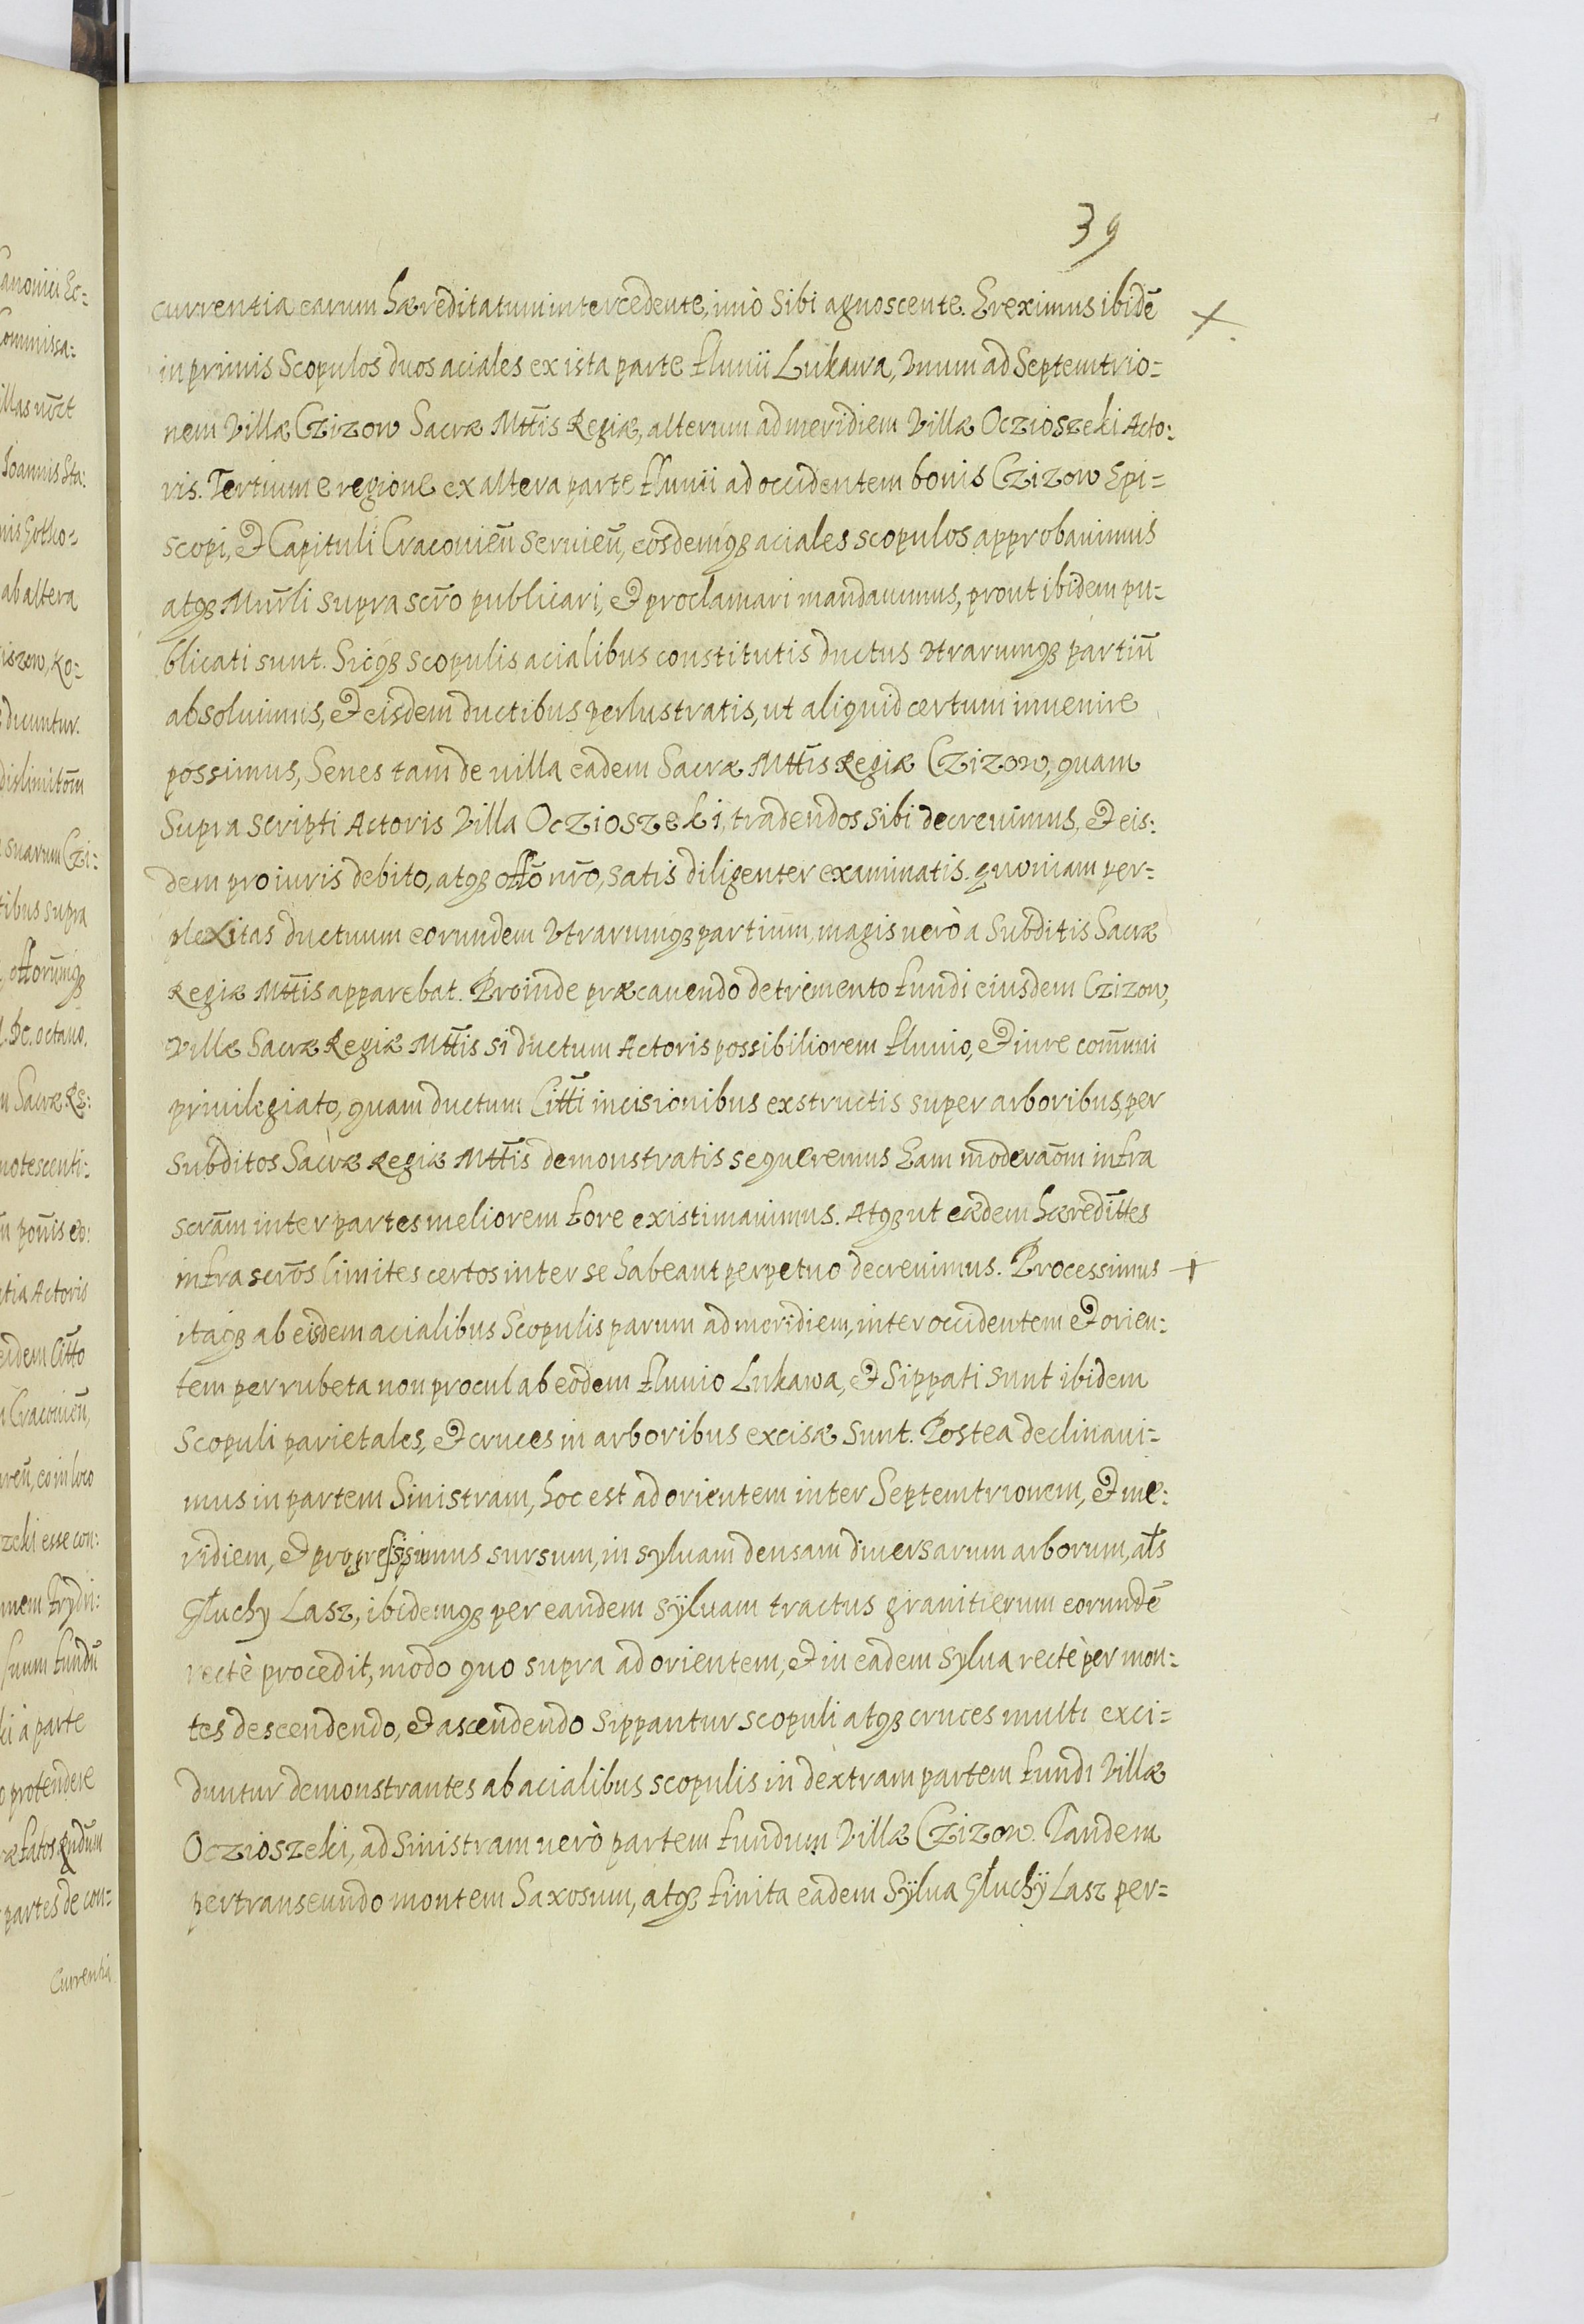 39
currentia earum hæreditatum intercedente, imò sibi agnoscente. Ereximus ibidē
in primis Scopulos duos aciales ex ista parte fluuii Lukawa, Vnum ad Septemtrio=
nem Villæ Czizow Sacræ Mttis Regiæ, alterum ad meridiem Villæ Oczioszeki Acto:
ris. Tertium e regione ex altera parte fluuii ad occidentem bonis Czizow Epi=
scopi, et Capituli Cracouieū seruieū, eosdemqȝ aciales scopulos approbauimus
atqȝ Mīnrli supra scr̄o publicari, et proclamari mandauimus, prout ibidem pu=
blicati sunt. Sicqȝ scopulis acialibus constitutis ductus vtrarumqȝ partiū
absoluimus, et eisdem ductibus perlustratis, ut aliquid certum inuenire
possimus, Senes tam de uilla eadem Sacræ Mttis Regiæ Czizow, quam
Supra scripti Actoris Villa Oczioszeki, tradendos sibi decreuimus, et eis:
dem pro iuris debito, atqȝ offō nr̄o, satis diligenter examinatis. quoniam per=
plexitas ductuum eorundem Vtrarumqȝ partium, magis uerò a Subditis Sacræ
Regiæ Mttis apparebat. Proinde præcauendo detrimento fundi eiusdem Czizow,
Villæ Sacræ Regiæ Mttis si ductum Actoris possibiliorem fluuio, et iure com̄uni
priuilegiato, quam ductum Citti incisionibus exstructis super arboribus, per
Subditos Sacræ Regiæ Mttis demonstratis sequeremus Eam moderaōm infra
scrām inter partes meliorem fore existimauimus. Atqȝ ut eædem hæredittes
infra scr̄os limites certos inter se habeant perpetuo decreuimus. Processimus
itaqȝ ab eisdem acialibus Scopulis parum ad meridiem, inter occidentem et orien:
tem per rubeta non procul ab eodem fluuio Lukawa, et Sippati sunt ibidem
Scopuli parietales, et cruces in arboribus excisæ sunt. Postea declinaui=
mus in partem Sinistram, hoc est ad orientem inter Septemtrionem, et me:
ridiem, et progressimus sursum, in syluam densam diuersarum arborum, als
Głuchy Lasz, ibidemqȝ per eandem sÿluam tractus granitierum eorundē
rectè procedit, modo quo supra ad orientem, et in eadem Sylua rectè per mon:
tes descendendo, et ascendendo sippantur scopuli atqȝ cruces multi exci=
duntur demonstrantes ab acialibus scopulis in dextram partem fundi Villæ
Oczioszeki, ad Sinistram uerò partem fundum Villæ Czizow. Tandem
pertranseundo montem Saxosum, atqȝ finita eadem Sÿlua Głuchÿ Lasz per=